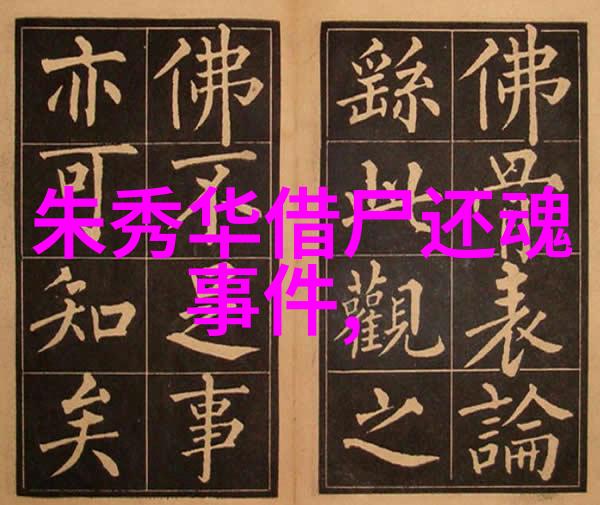 朱秀华借尸还魂
事件,
佛骨表論
繇此觀之
佛不足事
亦可知矣